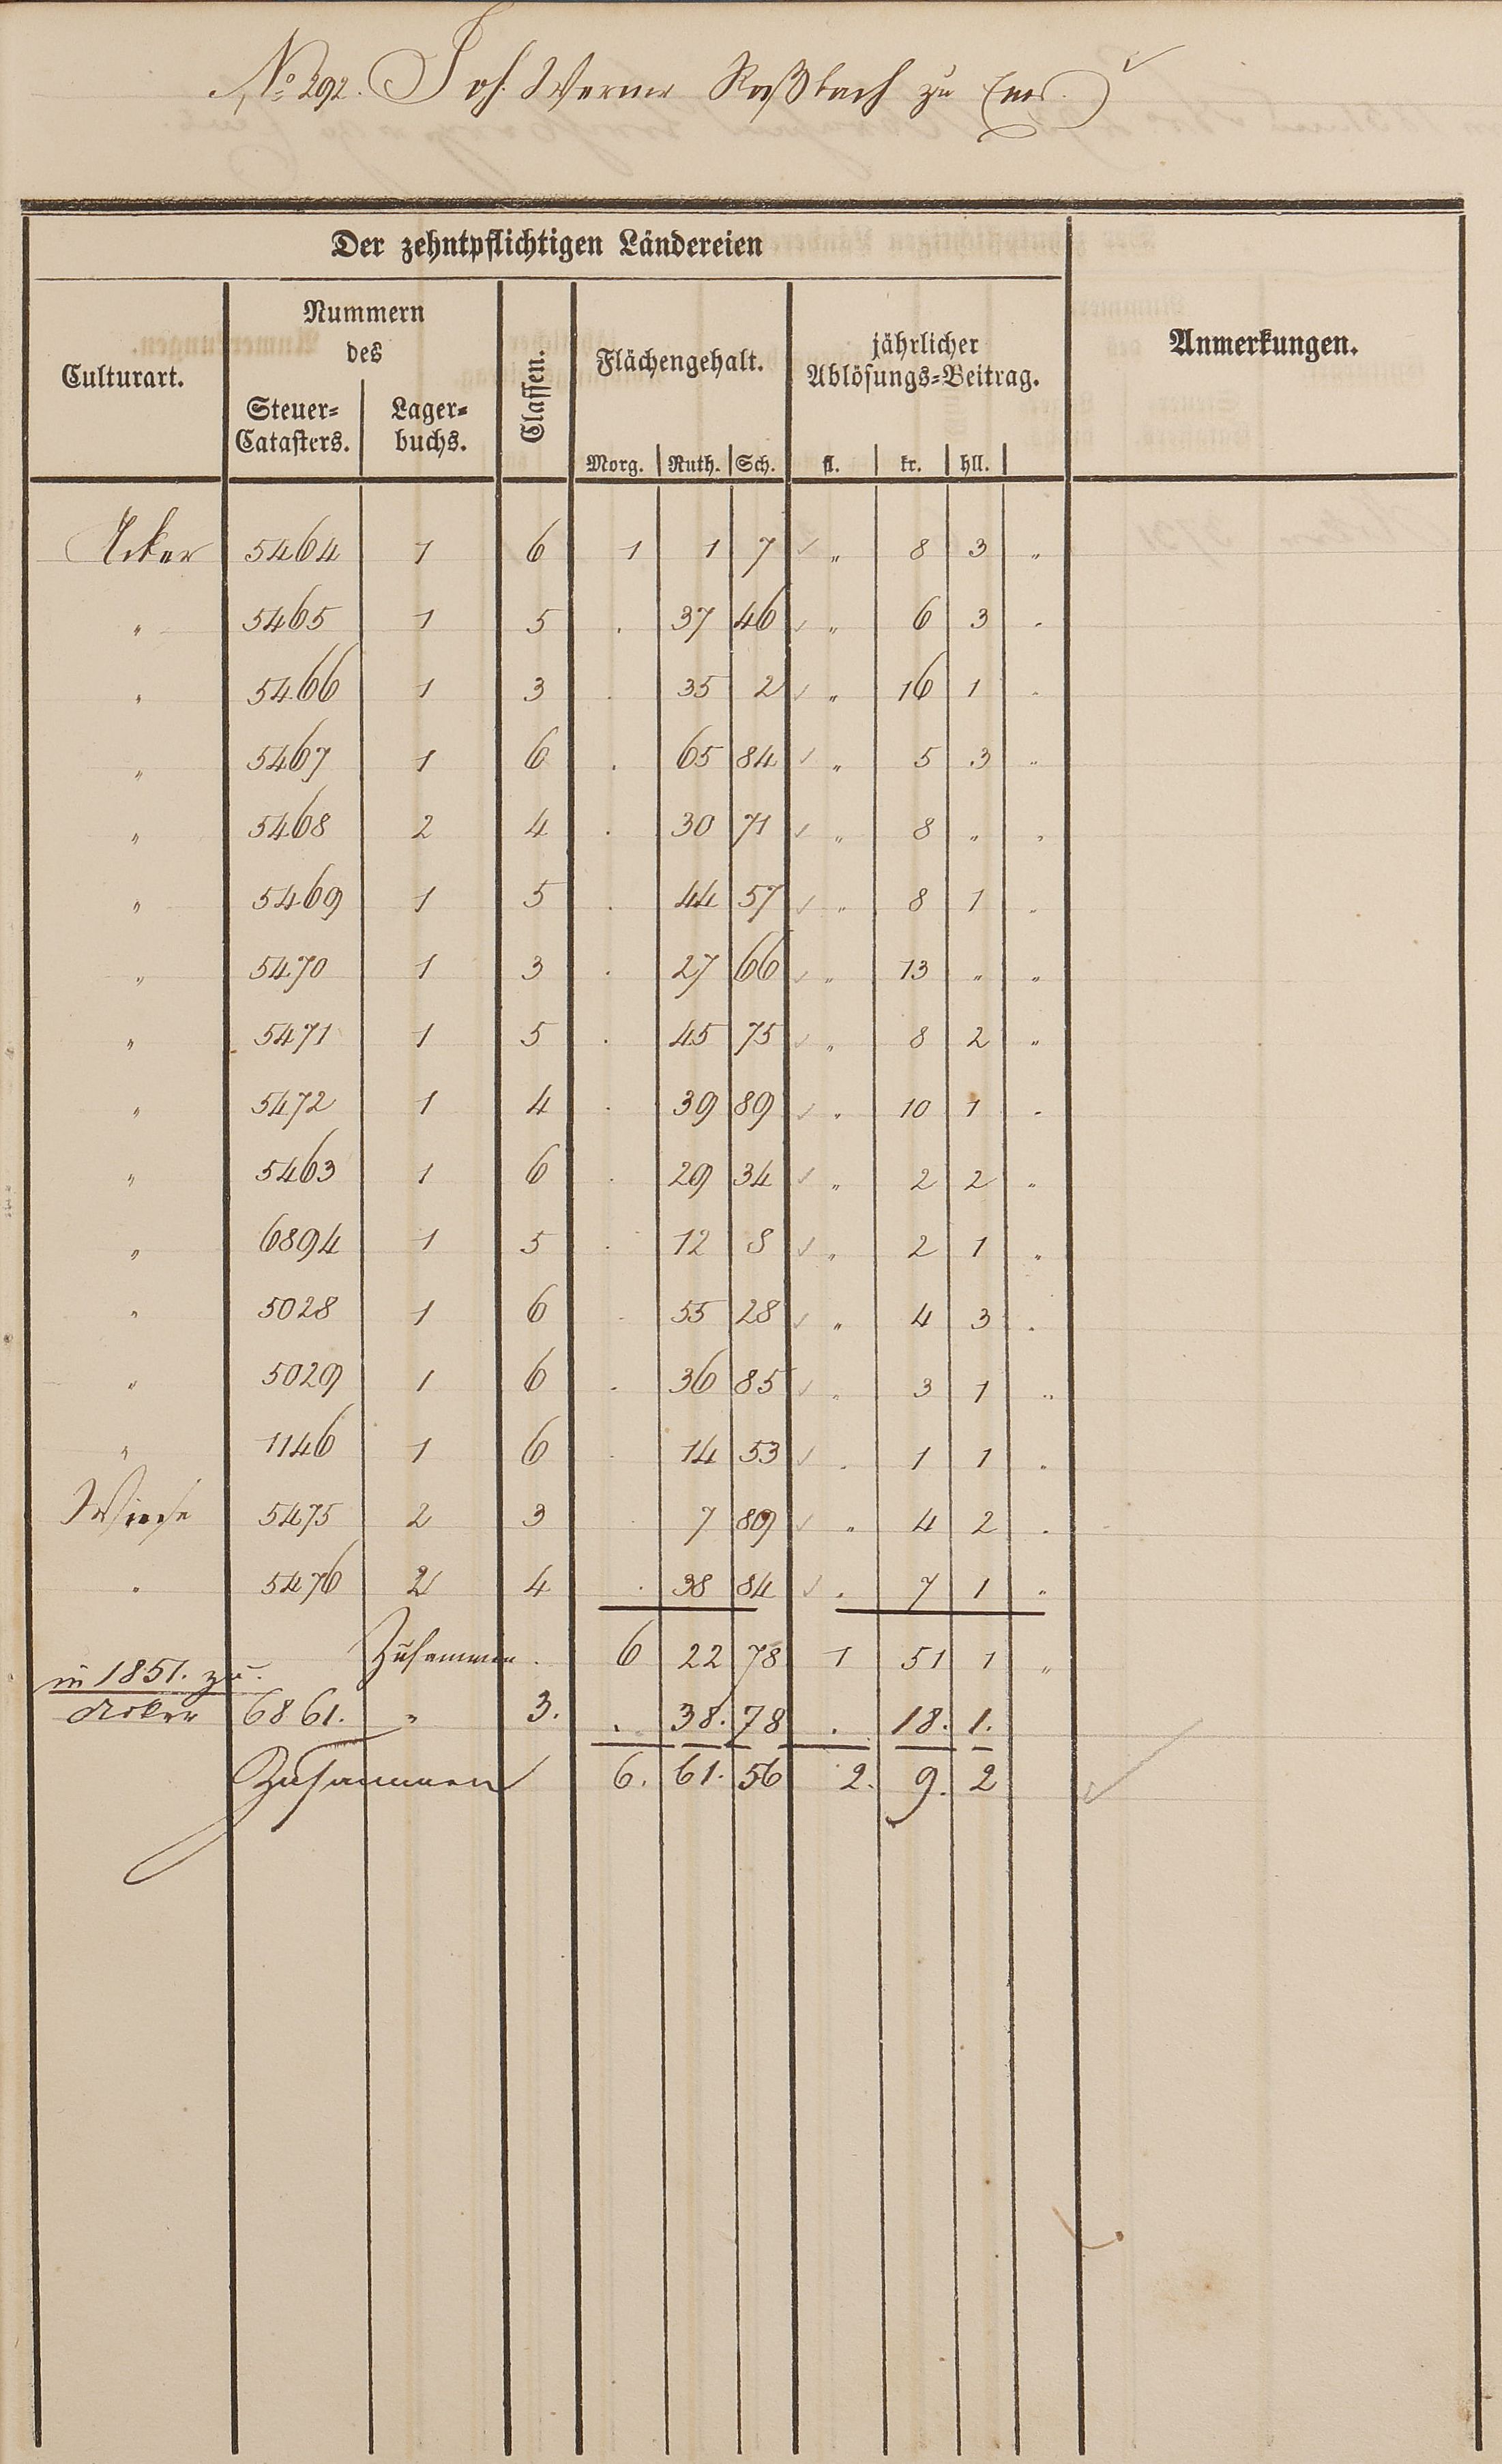 No 292. Joh. Werner Roßbach zu Ems.
Der zehntpflichtigen Ländereien
Culturart.
Nummern
des
Steuer=
Catasters.
Lager=
buchs.
Classen.
Flächengehalt.
Morg. Ruth. Sch.
jährlicher
Ablösungs=Beitrag.
fl. kr. hll.
Anmerkungen.
Acker 5464 1 6 1 1 7 „ 8 3 „
„ 5465 1 5 . 37 46 „ 6 3 „
„ 5466 1 3 . 35 2 „ 16 1 „
„ 5467 1 6 . 65 84 „ 5 3 „
„ 5468 2 4 . 30 71 „ 8 „ „
„ 5469 1 5 . 44 57 „ 8 1 „
„ 5470 1 3 . 27 66 „ 13 „ „
„ 5471 1 5 . 45 75 „ 8 2 „
„ 5472 1 4 . 39 89 „ 10 1 „
„ 5463 1 6 . 29 34 „ 2 2 „
„ 6894 1 5 . 12 8 „ 2 1 „
„ 5028 1 6 . 55 28 „ 4 3 „
„ 5029 1 6 . 36 85 „ 3 1 „
„ 1146 1 6 . 14 53 „ 1 1 „
Wiese 5475 2 3 . 7 89 „ 4 2 „
„ 5476 2 4 . 38 84 „ 7 1 „
Zusammen . 6 22 78 1 51 1 „
in 1851. zu.
Acker 6861. „ 3. . 38. 78 . 18. 1.
Zusammen 6. 61. 56 2. 9. 2